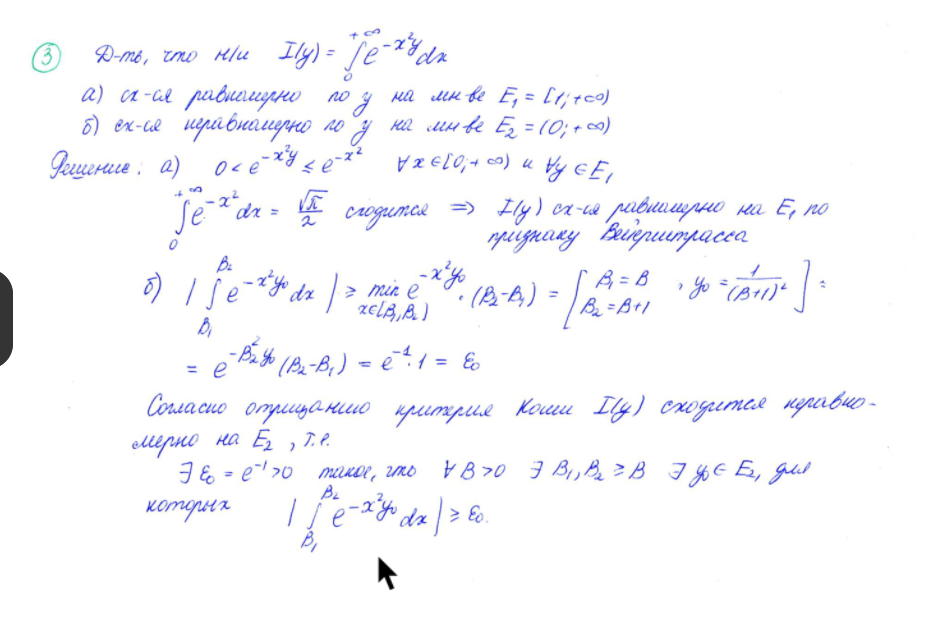 ③ Д-ть, что н/и I(y) = ∫₀^{+∞} e^{-x²y} dx
а) сх-ся равномерно по y на мн-ве E₁ = [1; +∞)
б) сх-ся неравномерно по y на мн-ве E₂ = (0; +∞)
Решение: а) 0 < e^{-x²y} ≤ e^{-x²} ∀x∈[0;+∞) и ∀y∈E₁
∫₀^{+∞} e^{-x²} dx = √π/2 сходится ⇒ I(y) сх-ся равномерно на E₁ по
признаку Вейерштрасса
б) |∫_{B₁}^{B₂} e^{-x²y₀} dx| ≥ min_{x∈[B₁,B₂]} e^{-x²y₀} · (B₂-B₁) = [B₁ = B, B₂ = B+1, y₀ = 1/(B+1)²] =
= e^{-B₂²y₀} (B₂-B₁) = e^{-1}·1 = ε₀
Согласно отрицанию критерия Коши I(y) сходится неравно-
мерно на E₂, т.е.
∃ ε₀ = e^{-1} > 0 такое, что ∀ B > 0 ∃ B₁, B₂ ≥ B ∃ y₀ ∈ E₂, для
которых |∫_{B₁}^{B₂} e^{-x²y₀} dx| ≥ ε₀.